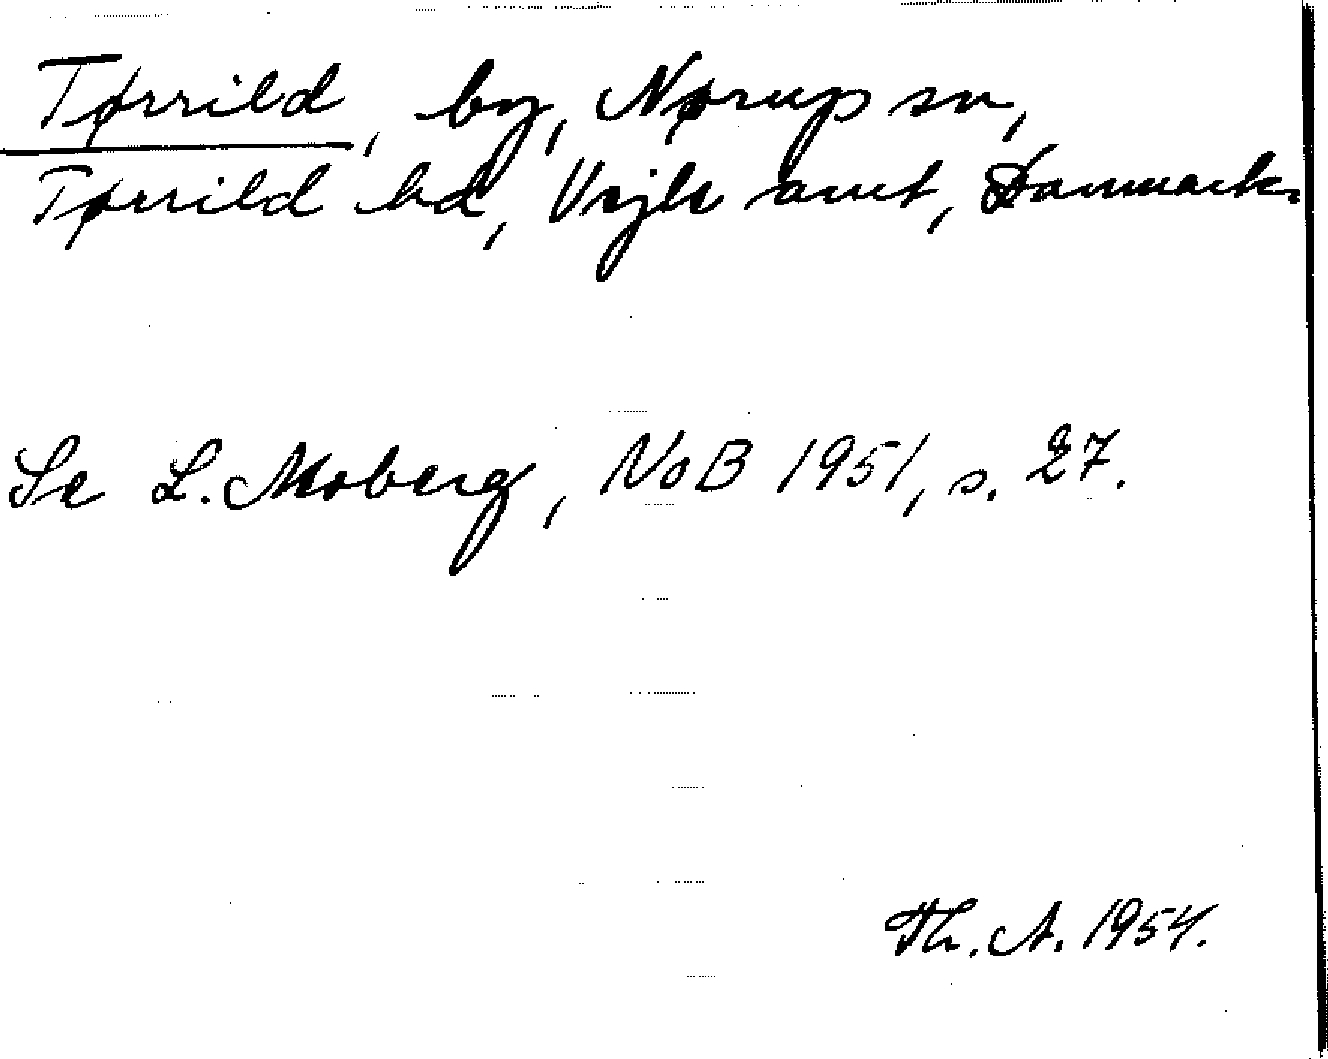 Tørrild, by, Nørup sn,
Tørrild hd, Vejle amt, Danmark.
Se L. Moberg, NoB 1951, s. 27.
Th. A. 1954.